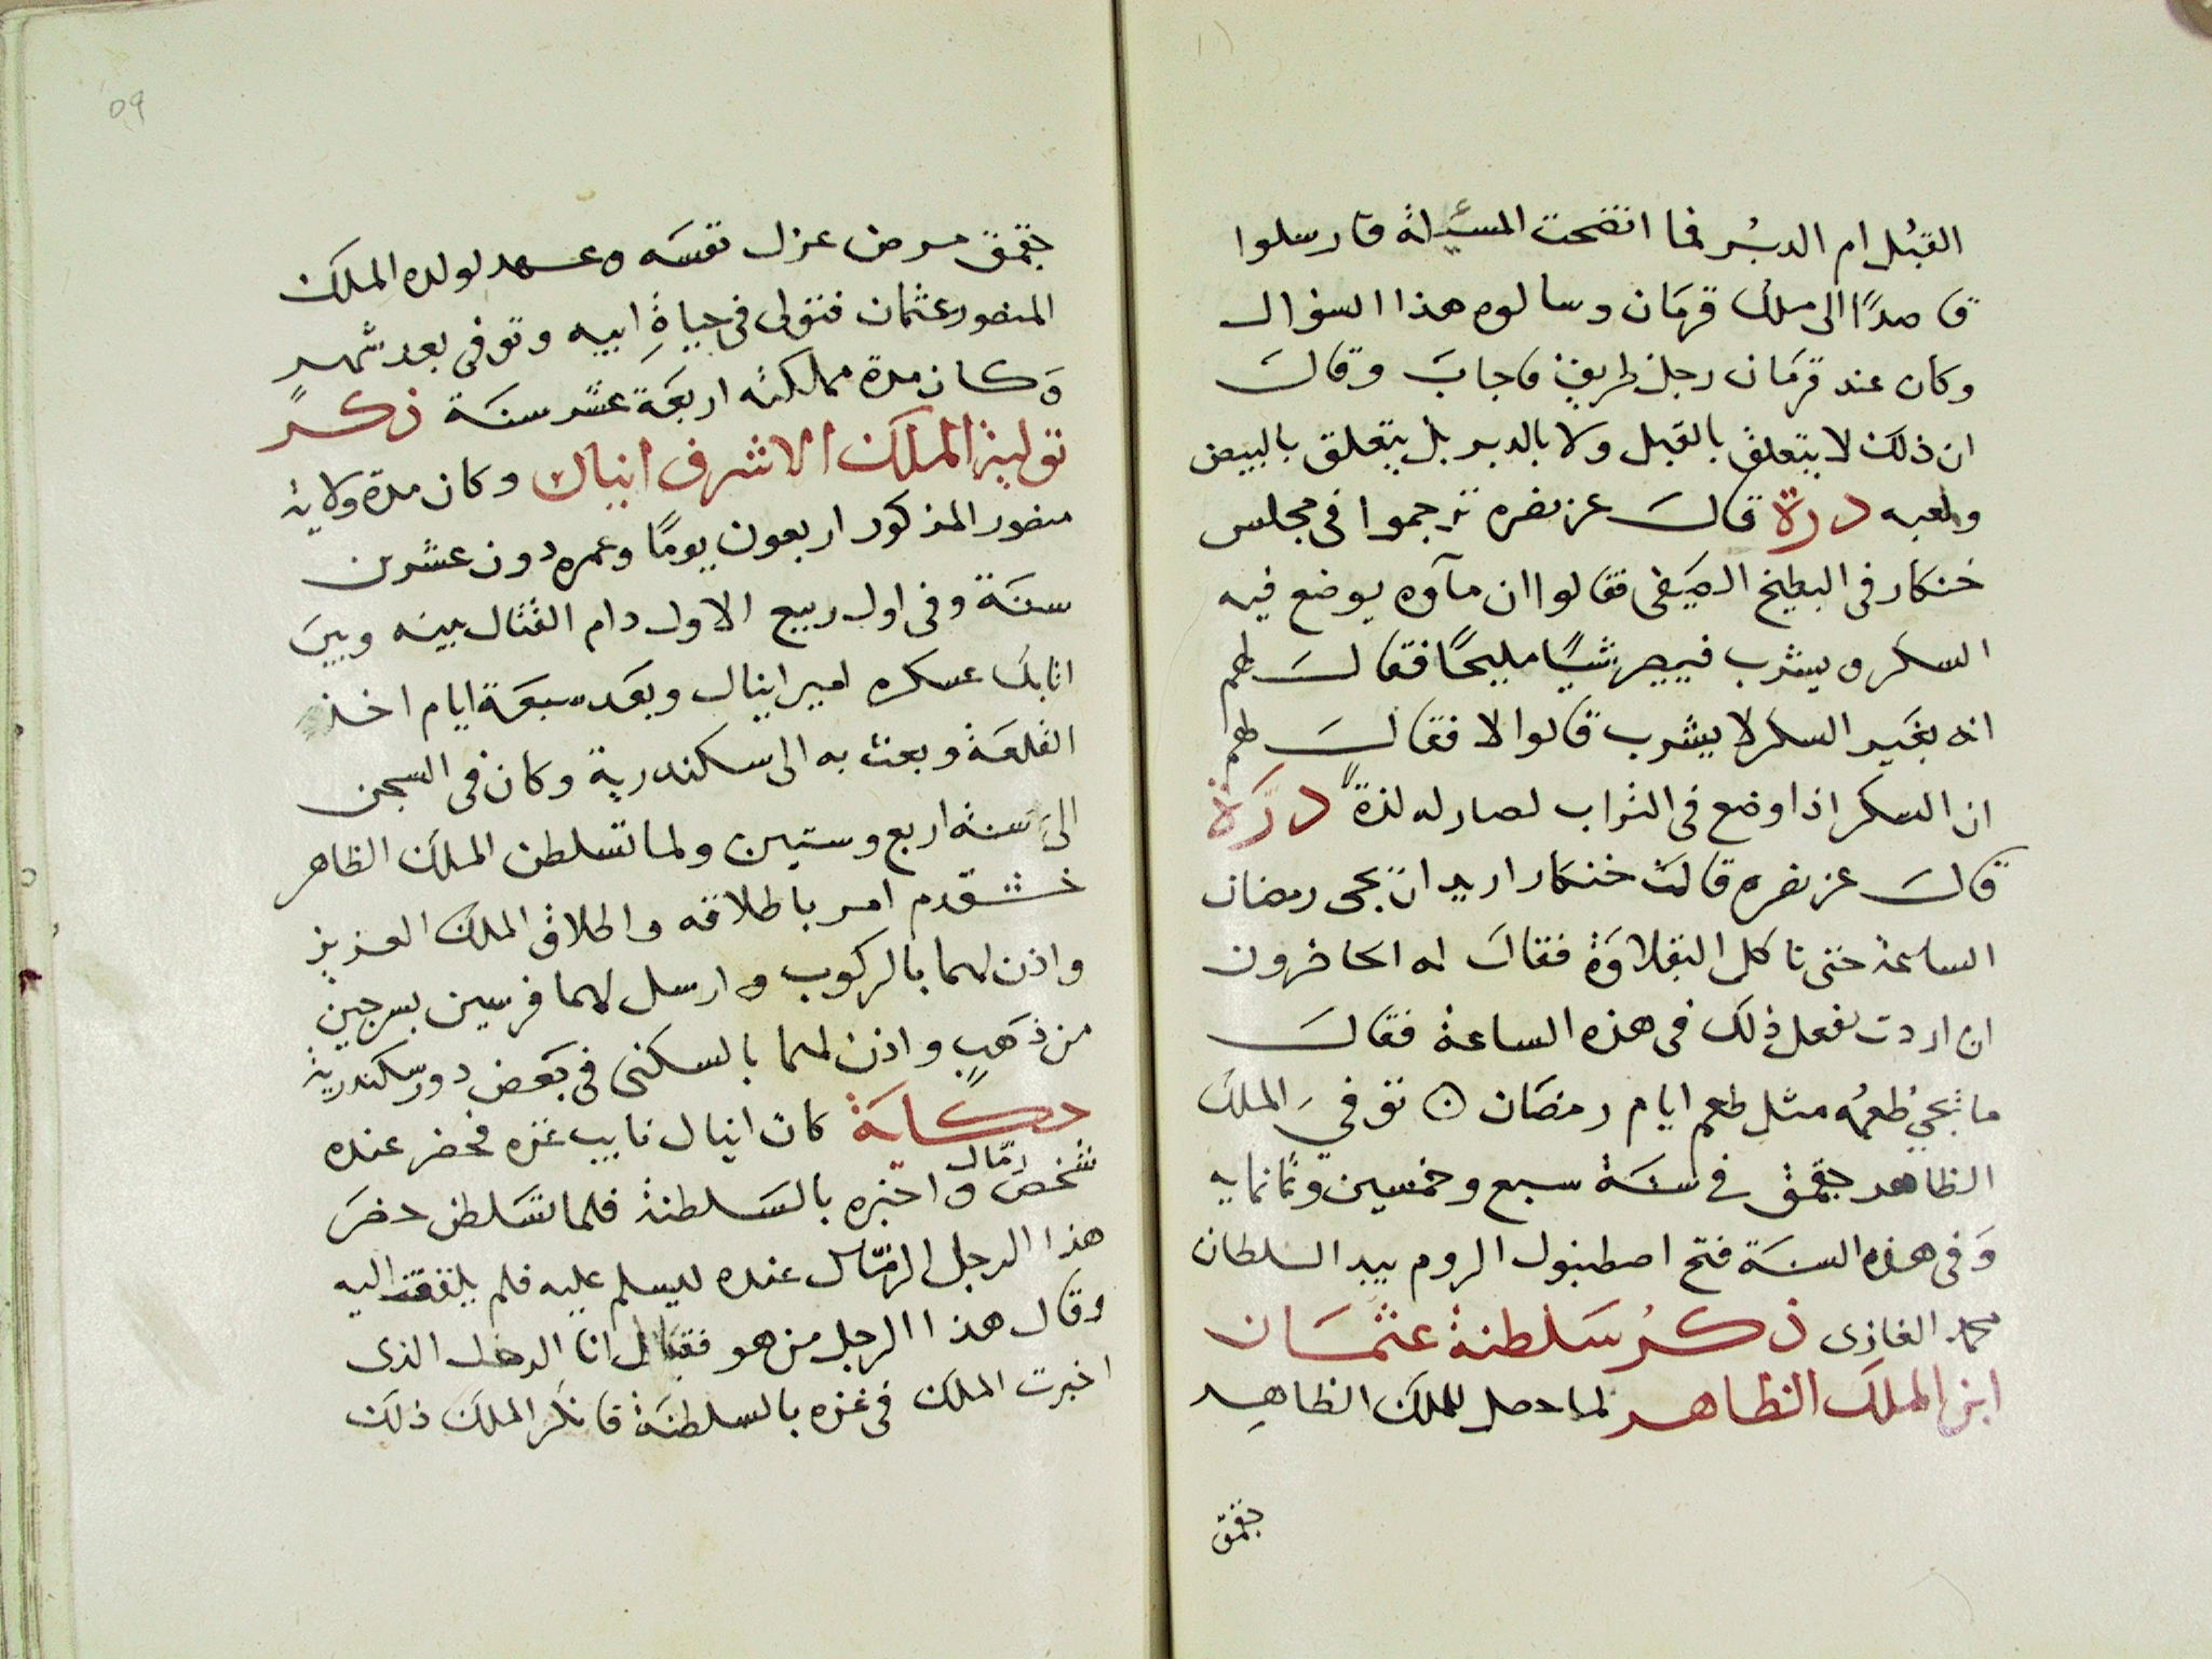 القبُل ام الدبُر فما اتضحت المسئلة فارسلوا
قاصدًا الى ملك قرمَان وسالوه هذا السؤال
وكان عند قرمَان رجل ظريف فاجابَ وقالَ
ان ذلك لا يتعلق بالقبل ولا بالدبر بل يتعلق بالبيض
ولعبه درة قالَ عز نصره ترجموا فى مجلس
خنكار فى البطيخ الصَيفى فقالوا ان مآوه يوضع فيه
السكر ويشرب فيصير شيًا مليحًا فقالَ لهم
انه بغَير السكر لا يشرب قالوا لا فقالَ لهم
ان السكر اذا وضع فى التراب لصار له لذة درَة
قالَ عز نصره قالت خنكار اريد ان يجى رمضان
الساعة حتى ناكل البقلاوَة فقالَ له الحاضرون
ان اردت نفعل ذلك فى هذه الساعة فقالَ
ما يجئ طعمُه مثل طعم ايام رمضَان ۞ توفيَ الملك
الظاهر جقمق فى سنَة سبع وخمسين وثمانمايه
وَفى هذه السنَة فتح اصطنبول الروم بيد السلطان
محمد الغازى ذكرُ سَلطنة عثمَان
ابن الملك الظاهر لما حصل للملك الظاهر
جقمق
٥٩
جقمق مرض عزل نفسَه وعهد لولده الملك
المنصور عثمان فتولى فى حياةِ ابيه وتوفى بعد شهر
وَكان مدة مملكته اربعَة عشر سنَة ذكر
تولية الملك الاشرف اينال وكان مدة ولاية
منصور المذكور اربعون يومًا وعمره دون عشرين
سنَة وفى اول ربيع الاول دام القتال بينه وبينَ
اتابك عسكره امير اينال وبعَد سبعَة ايام اخذ
القلعَة وبعث به الى سكندرية وكان فى السجن
الىَ سنة اربع وستين ولما تسلطن الملك الظاهر
خشقدم امر باطلاقه واطلاق الملك العزيز
واذن لهما بالركوب وارسل لهما فرسين بسرجين
من ذهَبٍ واذن لهما بالسكنى فى بعَض دور سكندرية
حكايَة كان اينال نايب غزه فحضر عنده
شخصٌ رمّال واخبره بالسَلطنة فلما تسَلطن حضرَ
هذا الرجل الرمّال عنده ليسلم عليه فلم يلتفت اليه
وقال هذا الرجل من هو فقال انا الرجل الذى
اخبرت الملك فى غزه بالسلطنَة فانكر الملك ذلك